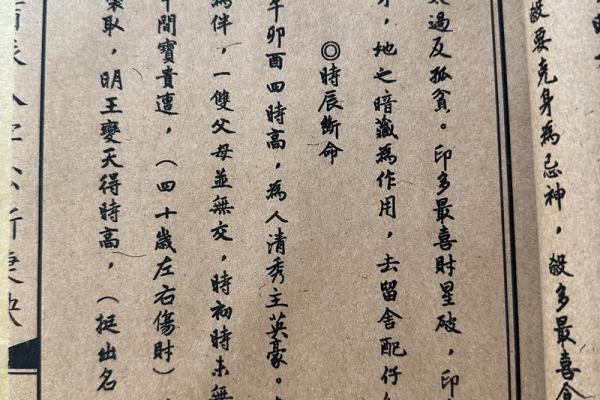 殺要克身為忌神，殺多最喜食
過反孤貧。印多最喜財星破，印
，地之暗藏為作用，去留舍配仔
◎時辰斷命
午卯酉四時高，為人清秀主英豪。
為伴，一雙父母並無交，時初時末無
年間寶貴運，（四十歲左右傷財）
取，明王變天得時高，（挺出名
八字公斷要訣